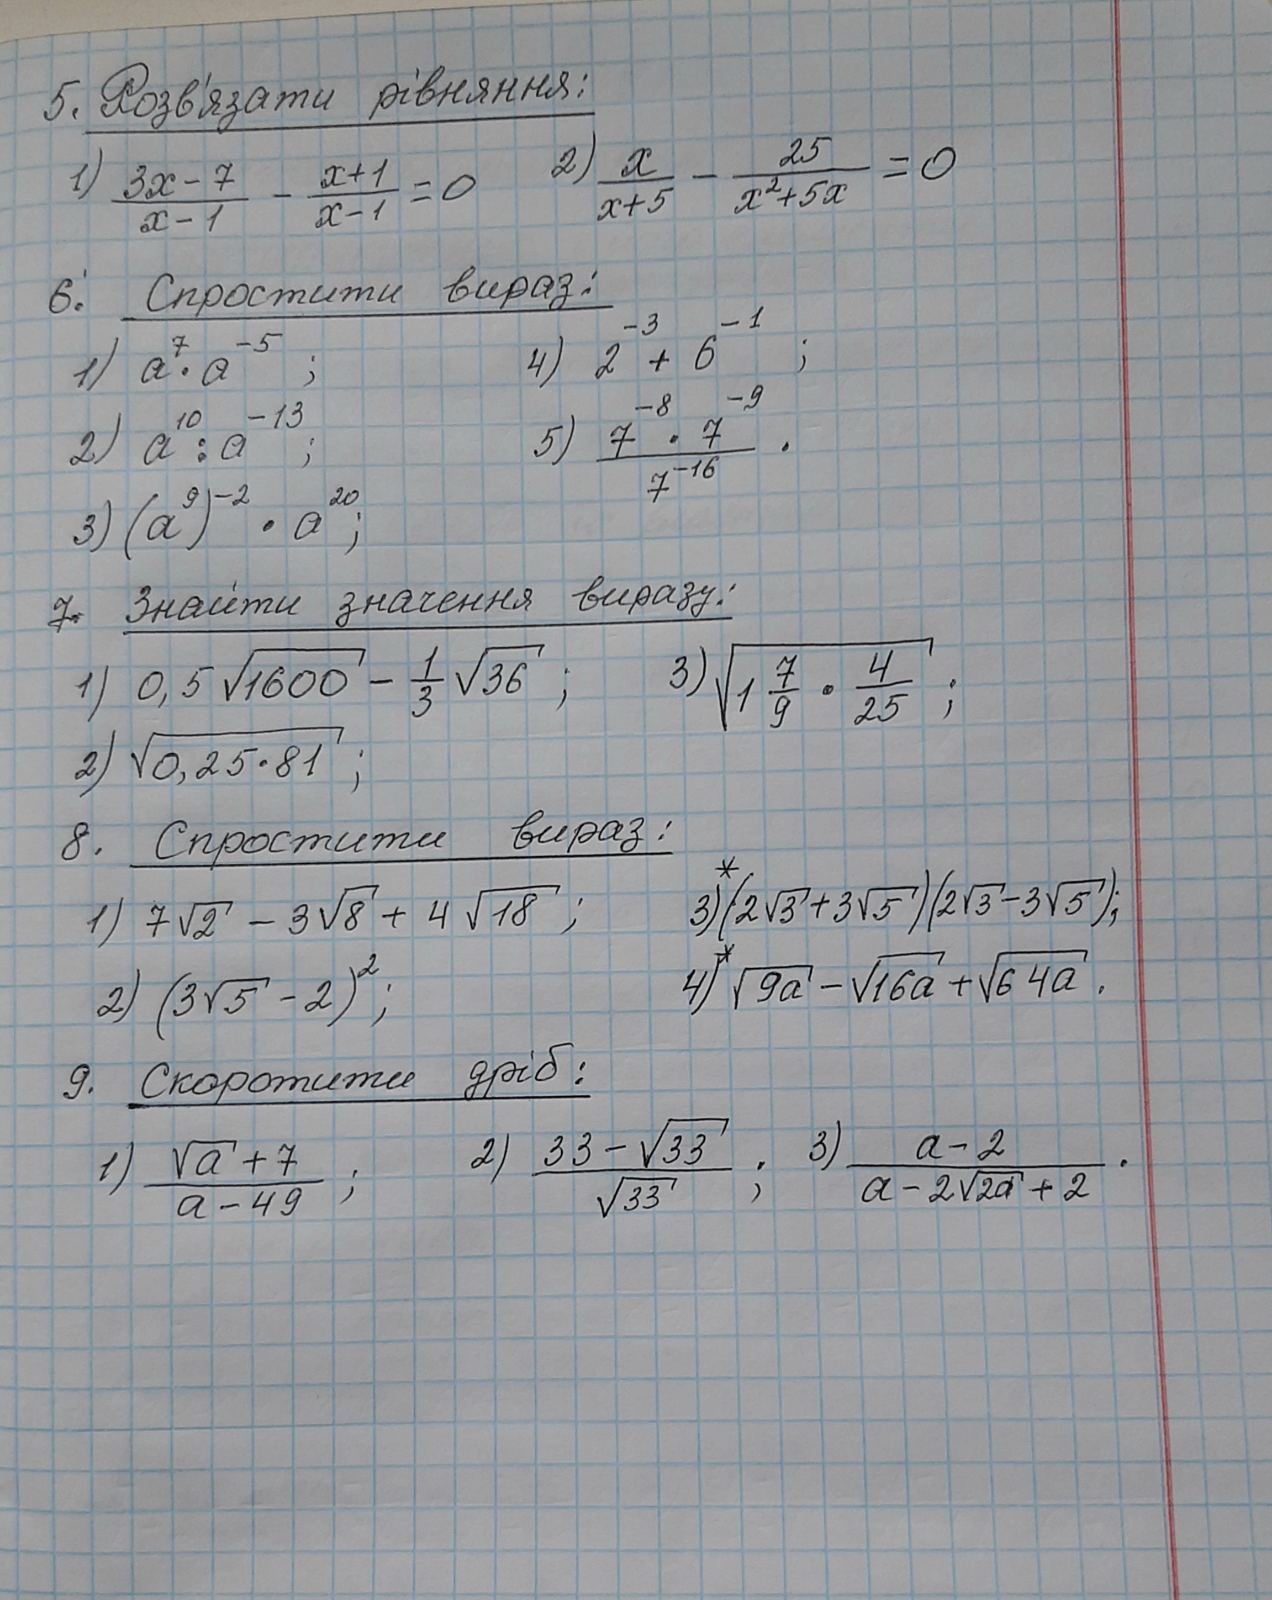 5. Розв'язати рівняння:
1) (3x-7)/(x-1) - (x+1)/(x-1) = 0    2) x/(x+5) - 25/(x²+5x) = 0
6. Спростити вираз:
1) a⁷·a⁻⁵;    4) 2⁻³ + 6⁻¹;
2) a¹⁰:a⁻¹³;    5) (7⁻⁸·7⁻⁹)/7⁻¹⁶.
3) (a⁹)⁻²·a²⁰;
7. Знайти значення виразу:
1) 0,5√1600 - 1/3 √36;    3) √(1 7/9 · 4/25);
2) √(0,25·81);
8. Спростити вираз:
1) 7√2 - 3√8 + 4√18;    3)* (2√3+3√5)(2√3-3√5);
2) (3√5 - 2)²;    4)* √(9a) - √(16a) + √(64a).
9. Скоротити дріб:
1) (√a+7)/(a-49);    2) (33-√33)/√33;    3) (a-2)/(a-2√(2a)+2).